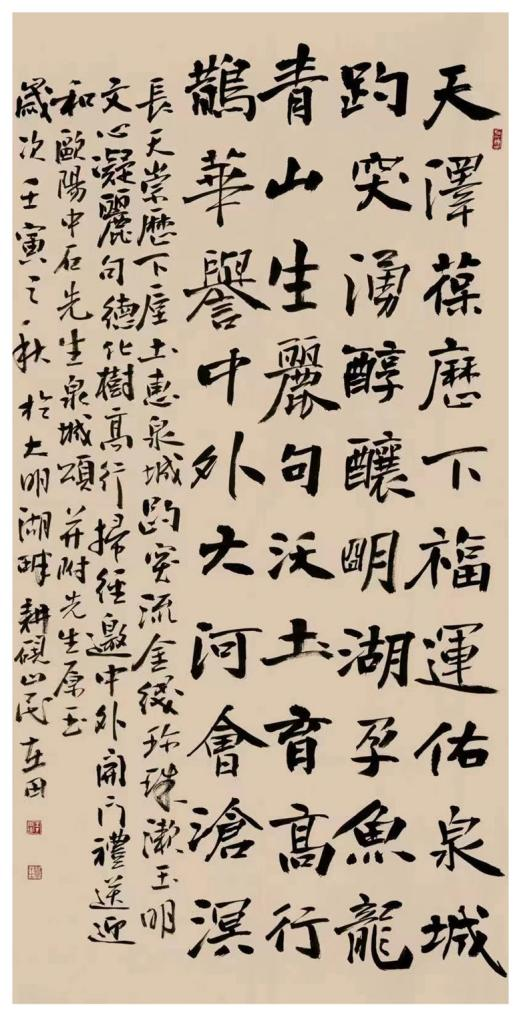 天澤葆歷下福運佑泉城
趵突湧醇釀明湖孕魚龍
青山生麗句沃土育高行
鵲華譽中外大河會滄溟
長天崇歷下垕土惠泉城趵突流金綫珍珠漱玉明
文心凝麗句德化樹高行掃徑邀中外開門禮送迎
和歐陽中石先生泉城頌并附先生原玉
歲次壬寅之秋於大明湖畔耕硯山民在田